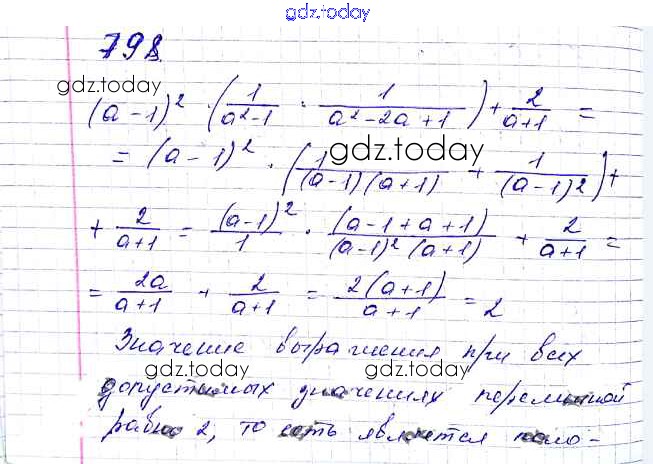 gdz.today
798
gdz.today
(a-1)² · (1/(a²-1) · 1/(a²-2a+1)) + 2/(a+1) =
= (a-1)² · (1/((a-1)(a+1)) + 1/(a-1)²) +
gdz.today
+ 2/(a+1) = (a-1)²/1 · (a-1+a+1)/((a-1)²(a+1)) + 2/(a+1) =
= 2a/(a+1) + 2/(a+1) = 2(a+1)/(a+1) = 2
Значение выражения при всех
gdz.today gdz.today
допустимых значениях переменной
равно 2, то есть является поло-